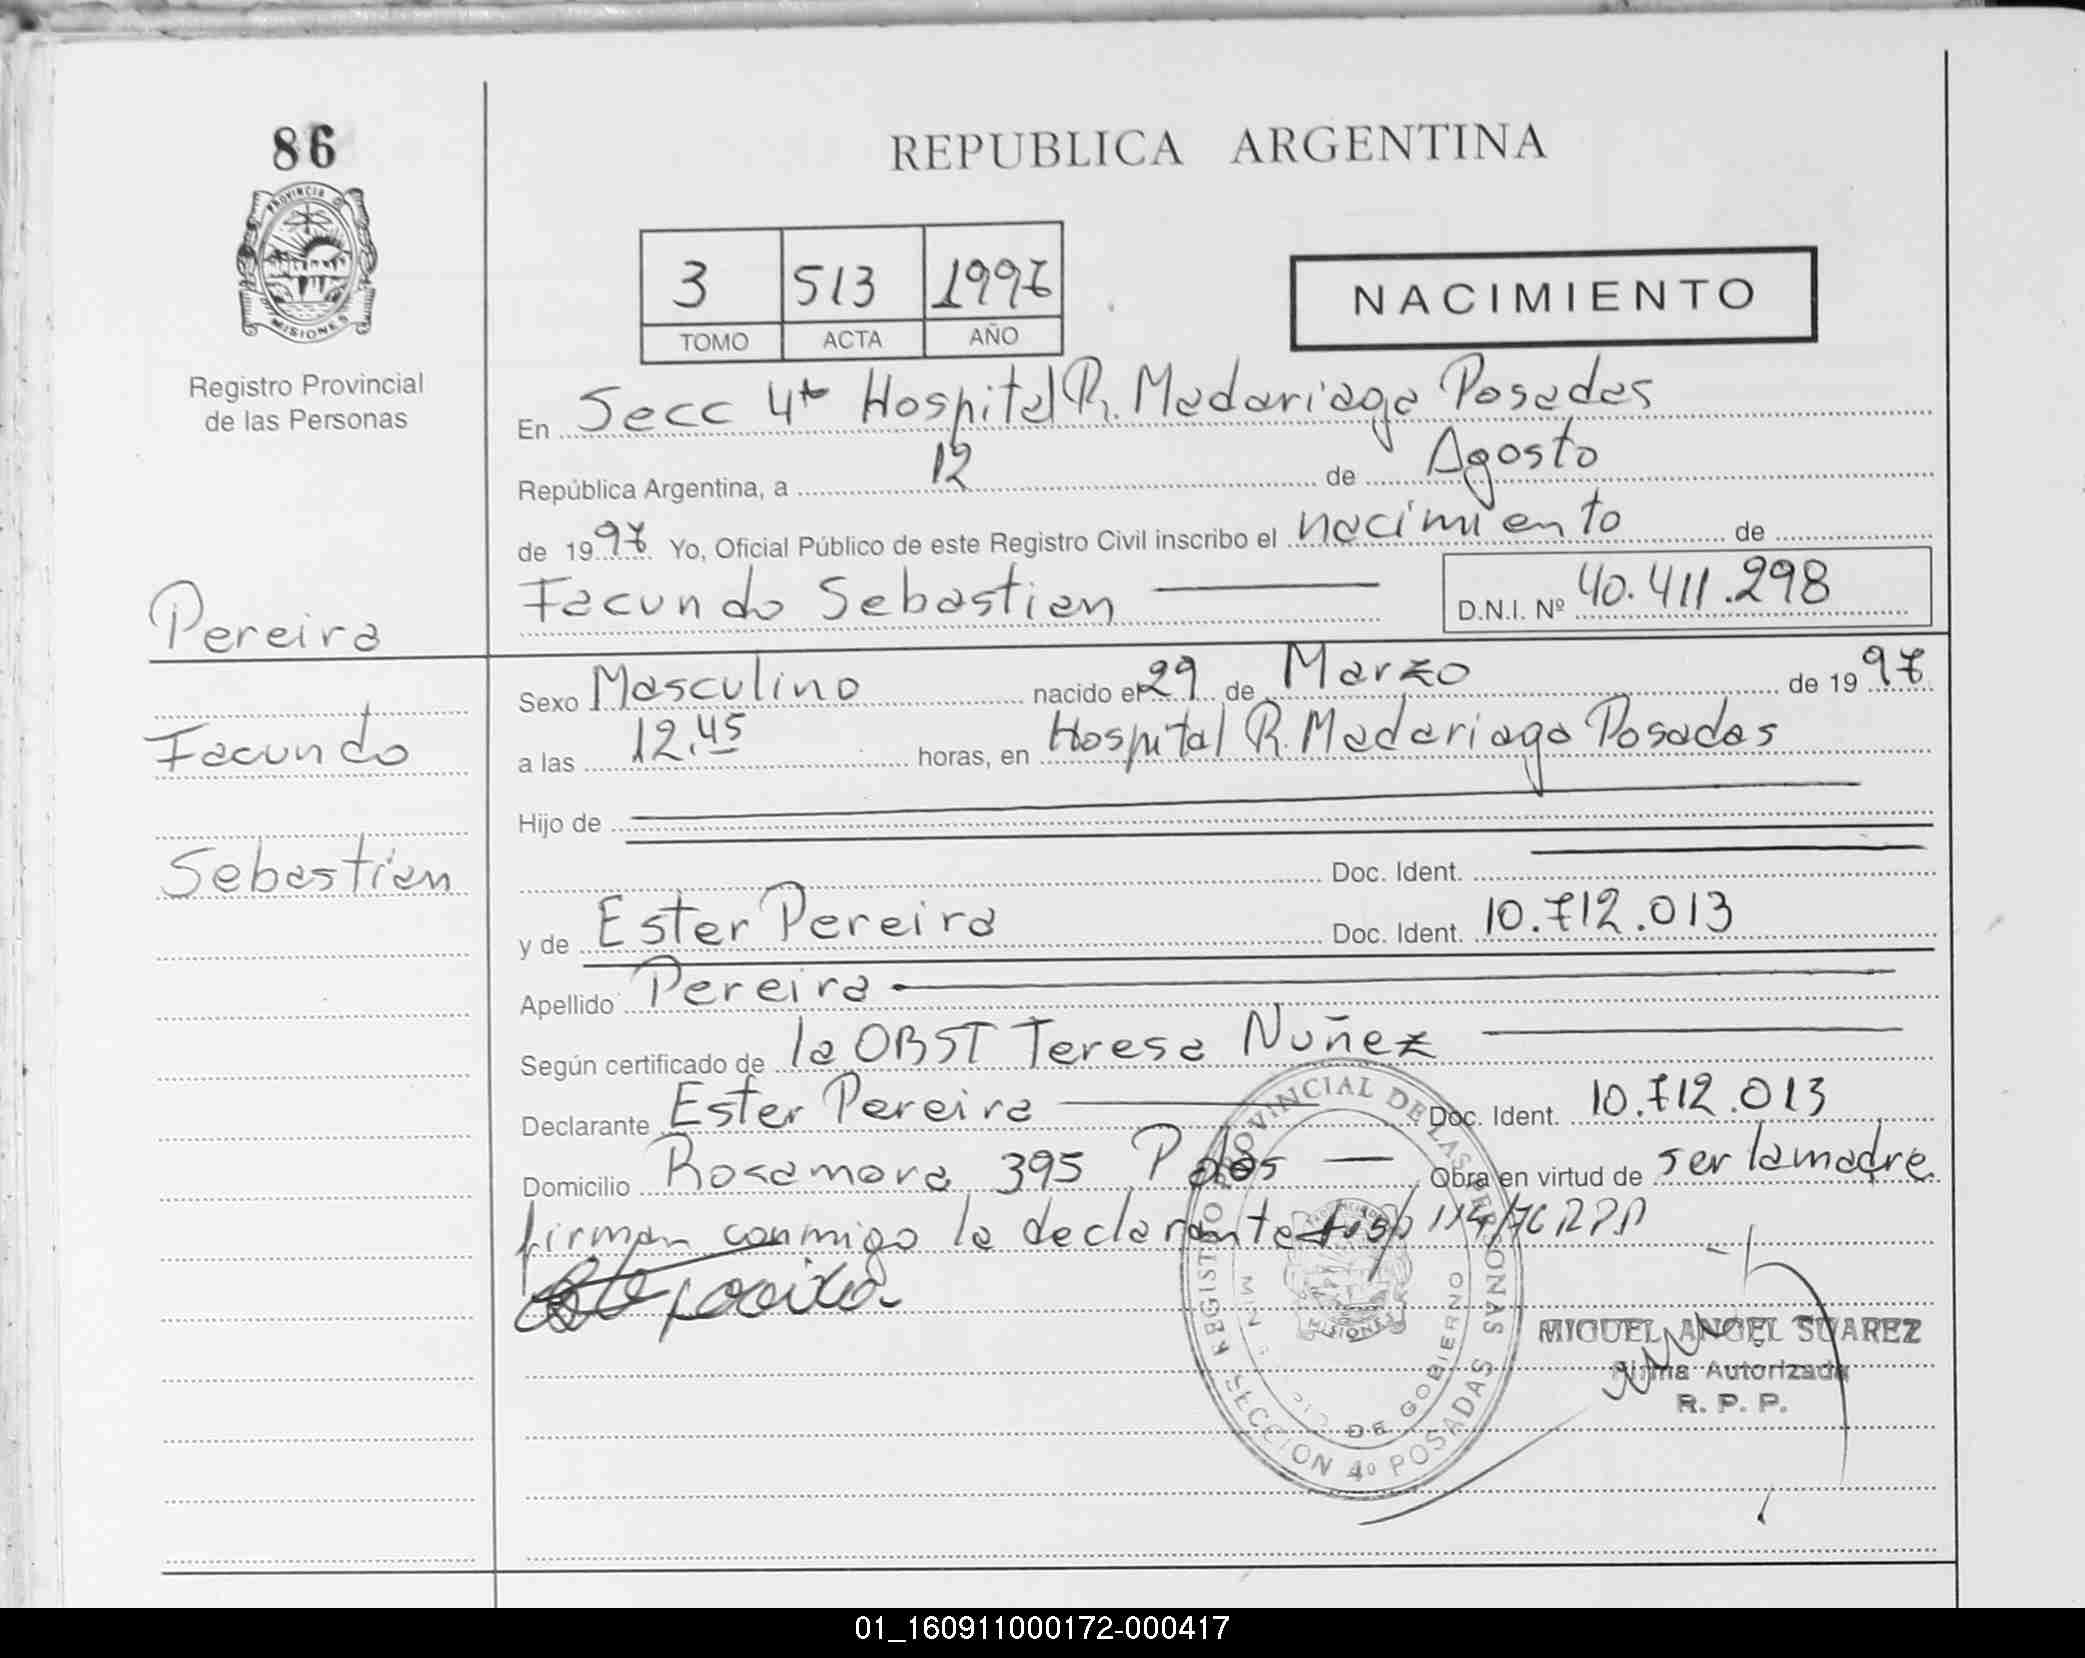 86
PROVINCIA DE
MISIONES
Registro Provincial
de las Personas
REPUBLICA ARGENTINA
3 513 1997
TOMO ACTA AÑO
NACIMIENTO
En Secc 4ta Hospital R. Madariaga Posadas
República Argentina, a 12 de Agosto
de 1997 Yo, Oficial Público de este Registro Civil inscribo el nacimiento de
Facundo Sebastian D.N.I. Nº 40.411.298
Pereira
Facundo
Sebastian
Sexo Masculino nacido el 29 de Marzo de 1997
a las 12.45 horas, en Hospital R. Madariaga Posadas
Hijo de
Doc. Ident.
y de Ester Pereira Doc. Ident. 10.712.013
Apellido Pereira
Según certificado de la OBST Teresa Nuñez
Declarante Ester Pereira Doc. Ident. 10.712.013
Domicilio Rosamora 395 Pdas Obra en virtud de ser la madre
firman conmigo la declarante
REGISTRO PROVINCIAL DE LAS PERSONAS
DE GOBIERNO
MISIONES
SECCION 4º POSADAS
MIGUEL ANGEL SUAREZ
Firma Autorizada
R. P. P.
01_160911000172-000417